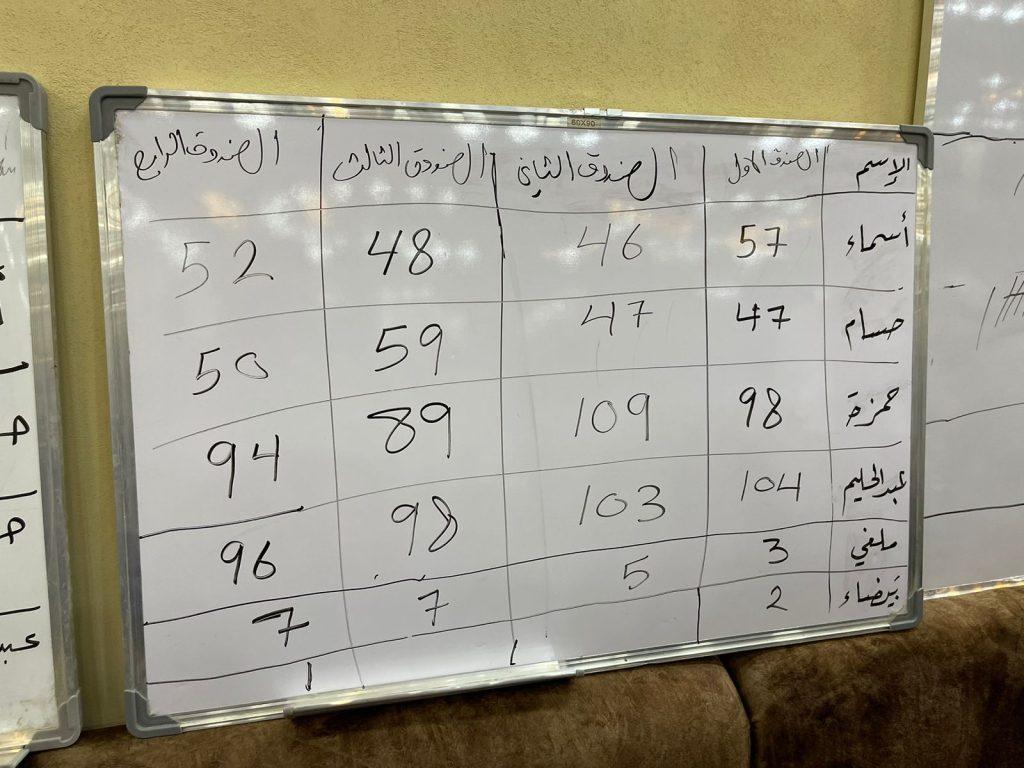 الإسم الصندوق الاول الصندوق الثاني الصندوق الثالث الصندوق الرابع
أسماء 57 46 48 52
حسام 47 47 59 50
حمزة 98 109 89 94
عبدالحليم 104 103 98 96
ملغي 3 5 7 7
بيضاء 2
60X90